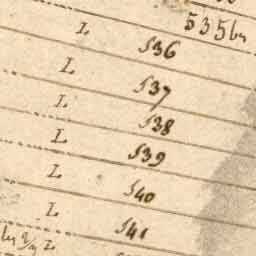 535 bis
L 536
L 537
L 538
L 539
L 540
L 541
L